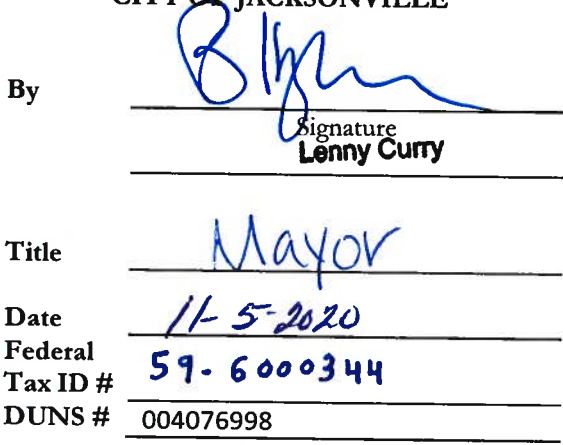 CITY OF JACKSONVILLE
By
Signature
Lenny Curry
Title Mayor
Date 11-5-2020
Federal
Tax ID # 59-6000344
DUNS # 004076998